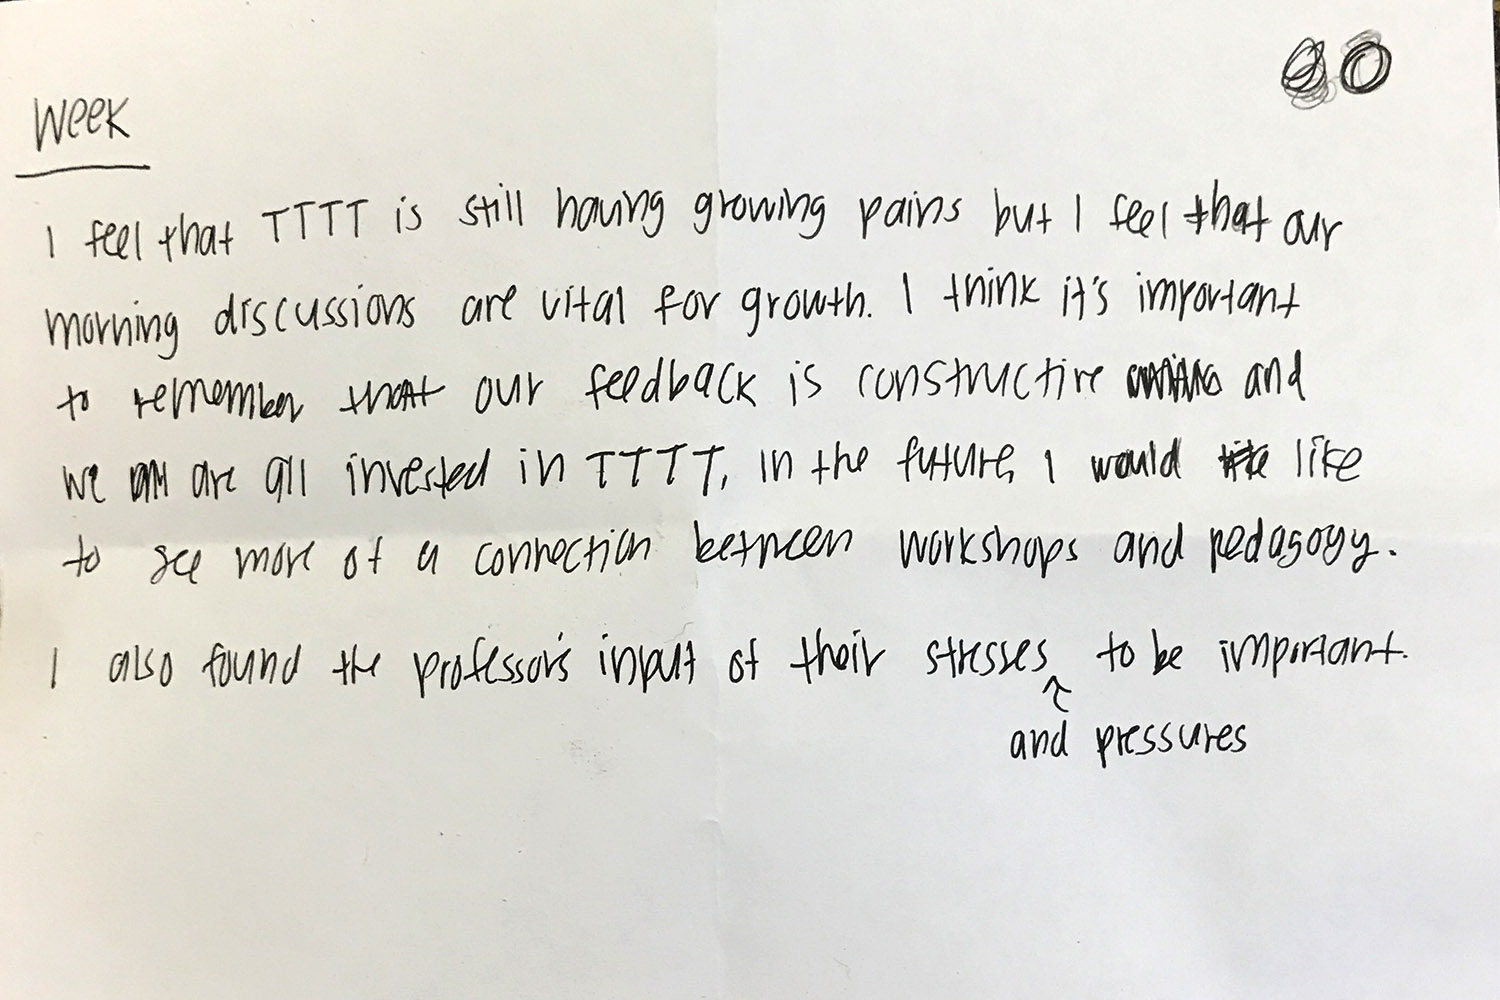 Week
I feel that TTTT is still having growing pains but I feel that our
morning discussions are vital for growth. I think it's important
to remember that our feedback is constructive and
we are all invested in TTTT, in the future, I would like
to see more of a connection between workshops and pedagogy.
I also found the professor's input of their stresses to be important.
and pressures